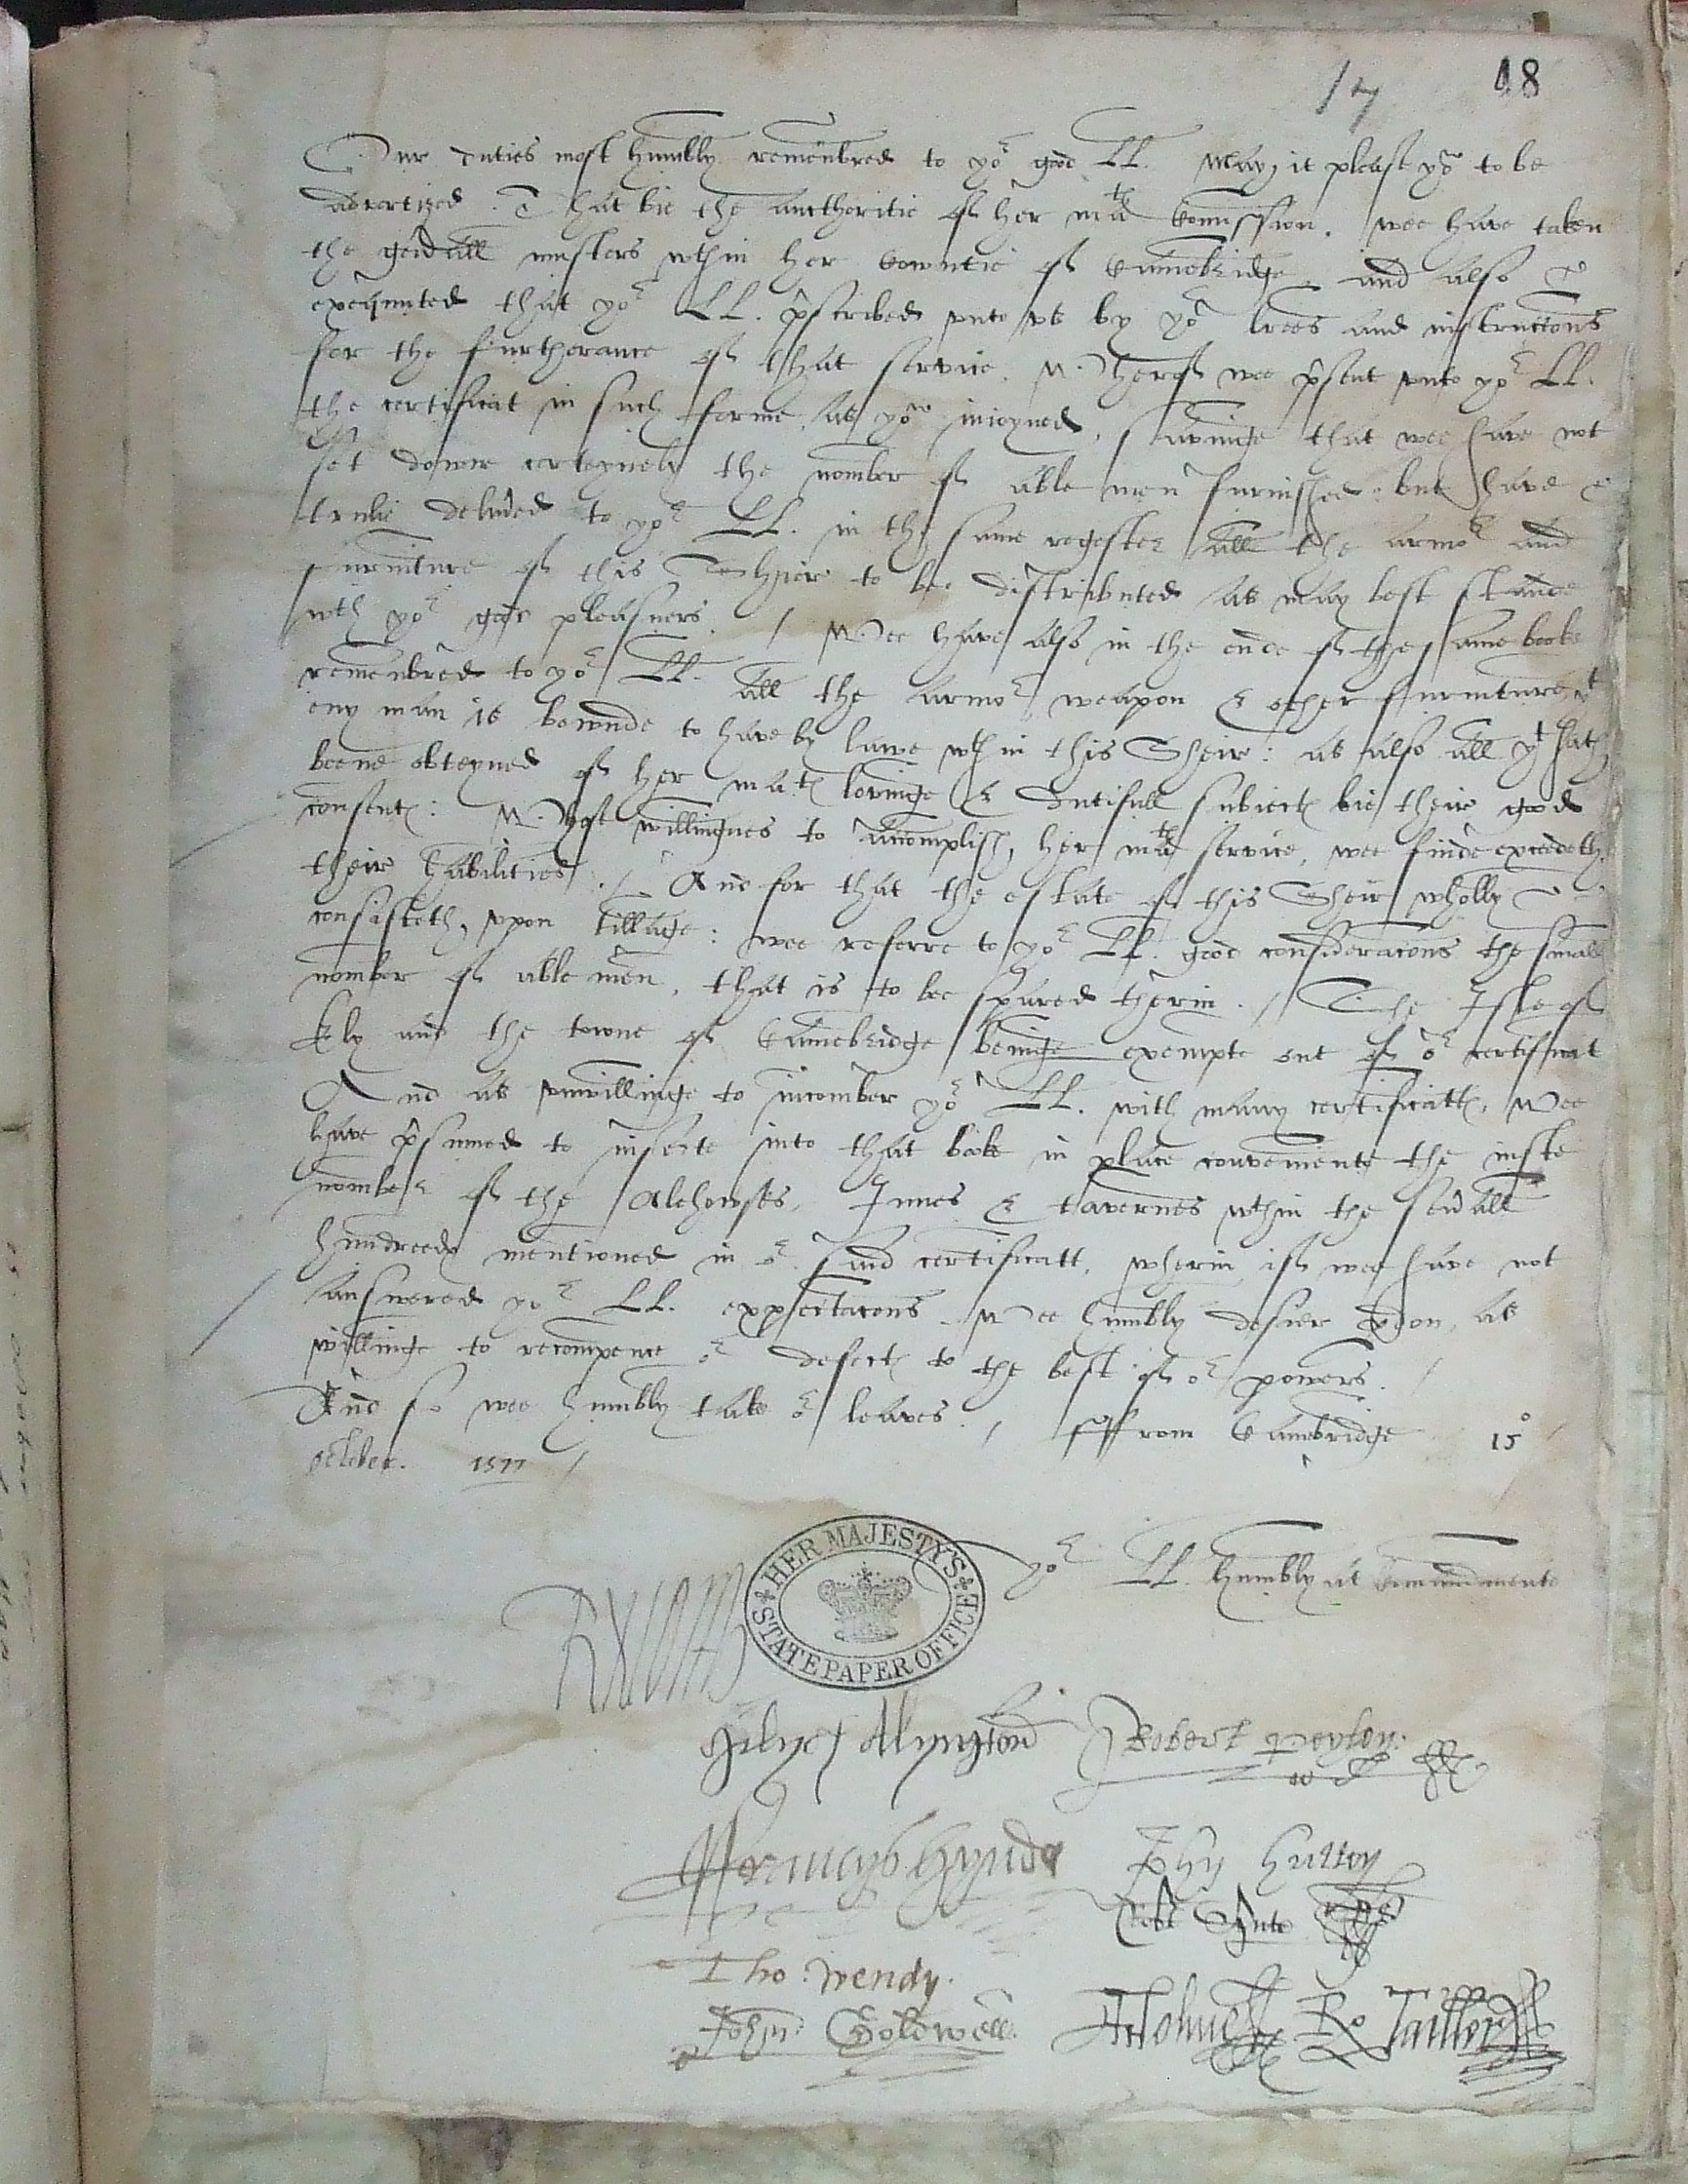 17 18
Our duties most humbly remembred to yor good LL. May it please yow to be
advertized. That bie the aucthoritie of her mates Comission. wee have taken
the genrall musters wthin her Cowntie of Cambridge, and also
exequuted that yor LL. prscribed vnto vs by yor lres and instructions
for the furtherance of that service. Wherof wee prsent vnto yor LL.
the certificat in such forme as yow inioyned, savinge that wee have not
set downe certeynely the nomber of able men furnisshed: but have
trulie deliued to yor LL. in the same regester all the armor and
furniture of this Shier to be distributed as may best stande
wth yor good pleasuers. / Wee have also in the ende of the same booke
remembred to yor LL. all the armor weapon & other furniture yt
eny man is bownde to have by lawe wthin this Sheir: as also all yt hath
beene obteyned of her mates lovinge & dutifull subiectes bie their good
consentes: Whose willingnes to accomplish, her mates service, wee finde excedeth
their habilities. / And for that the estate of this Sheir wholly
consisteth, vpon tillage: wee referre to yor LL. good consideracons the small
nomber of able men, that is to bee spared therin. / The Isle of
Ely and the towne of Cambridge beinge exempte out of or certificat
And as vnwillinge to incomber yor LL. with many certificattes, Wee
have prsumed to inserte into that booke in place conveniente the iuste
nomber of the Alehowses, Innes & tavernes wthin the seuall
hundreds mentioned in or said certificatt, wherin if wee have not
answered yor LL. expectacons Wee humbly desier pdon, as
willinge to recompence or defectes to the best of or powers. /
And so wee humbly take or leaves. / ffrom Cambridge 15o
october. 1577 /
yor LL. humbly at Comaundmente
HER MAJESTY'S STATE PAPER OFFICE
Gilys Alyngton Robert Peyton
Frauncys Hynde John Hutton
Robt Shute
Tho: Wendy.
John: Goldwell. Ro Tailler